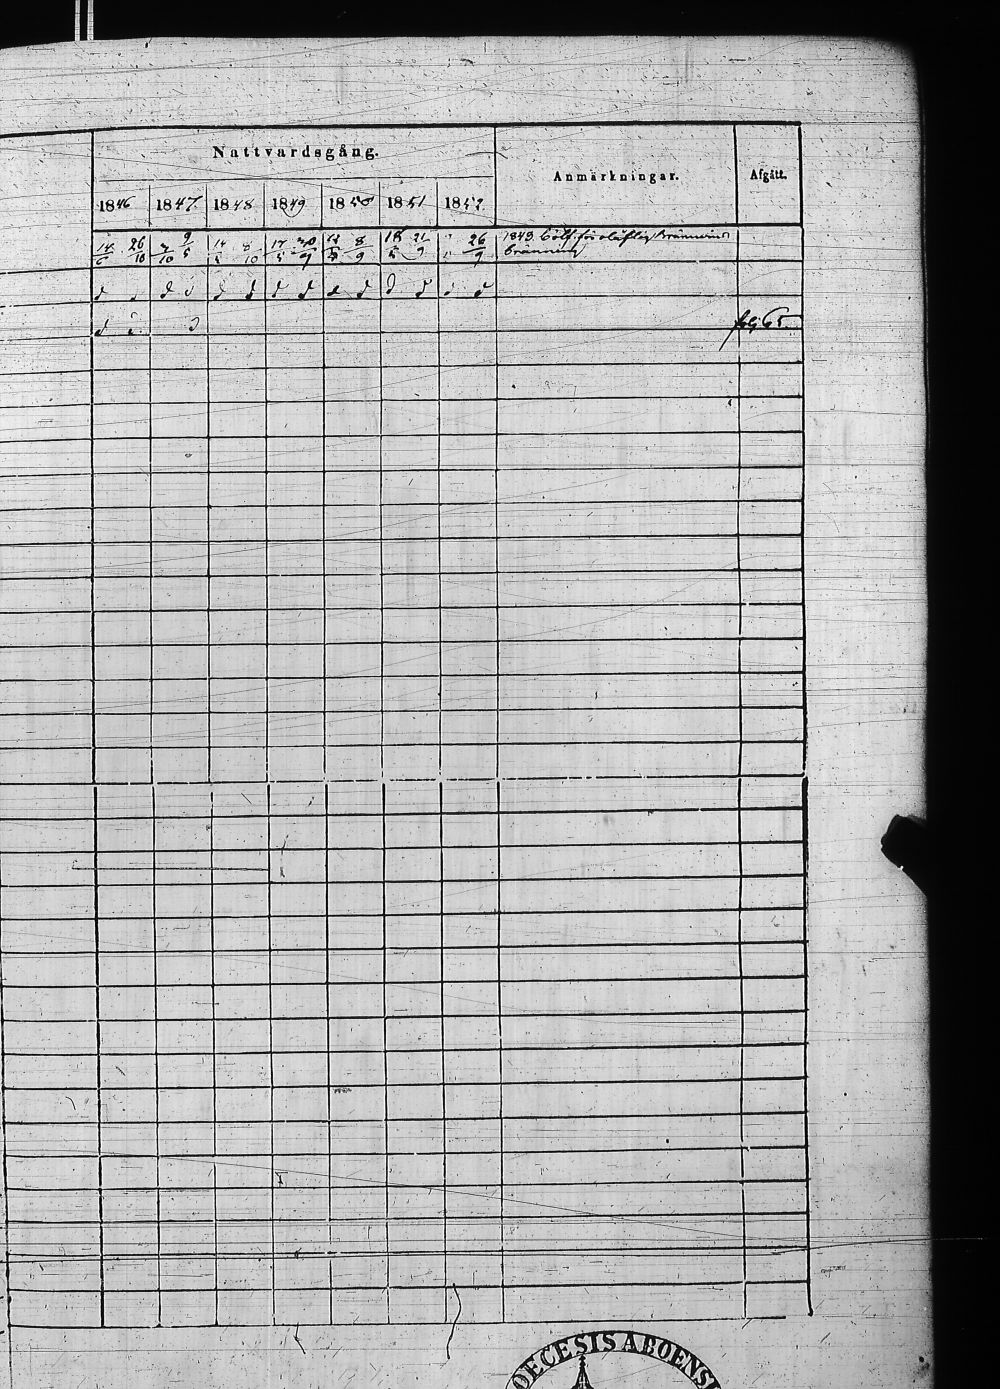 Nattvardsgång.
Anmärkningar.
Afgått.
1846 1847 1848 1849 1850 1851 1852
14/6 26/10 3/10 9/5 14/5 8/10 17/5 30/9 12/5 8/9 18/5 21/9 26/9 1843 bött för olaflig bränwins
bränning
d d d d d d d d d d d d
d d d
fol. 65.
DIOECESIS ABOENSIS